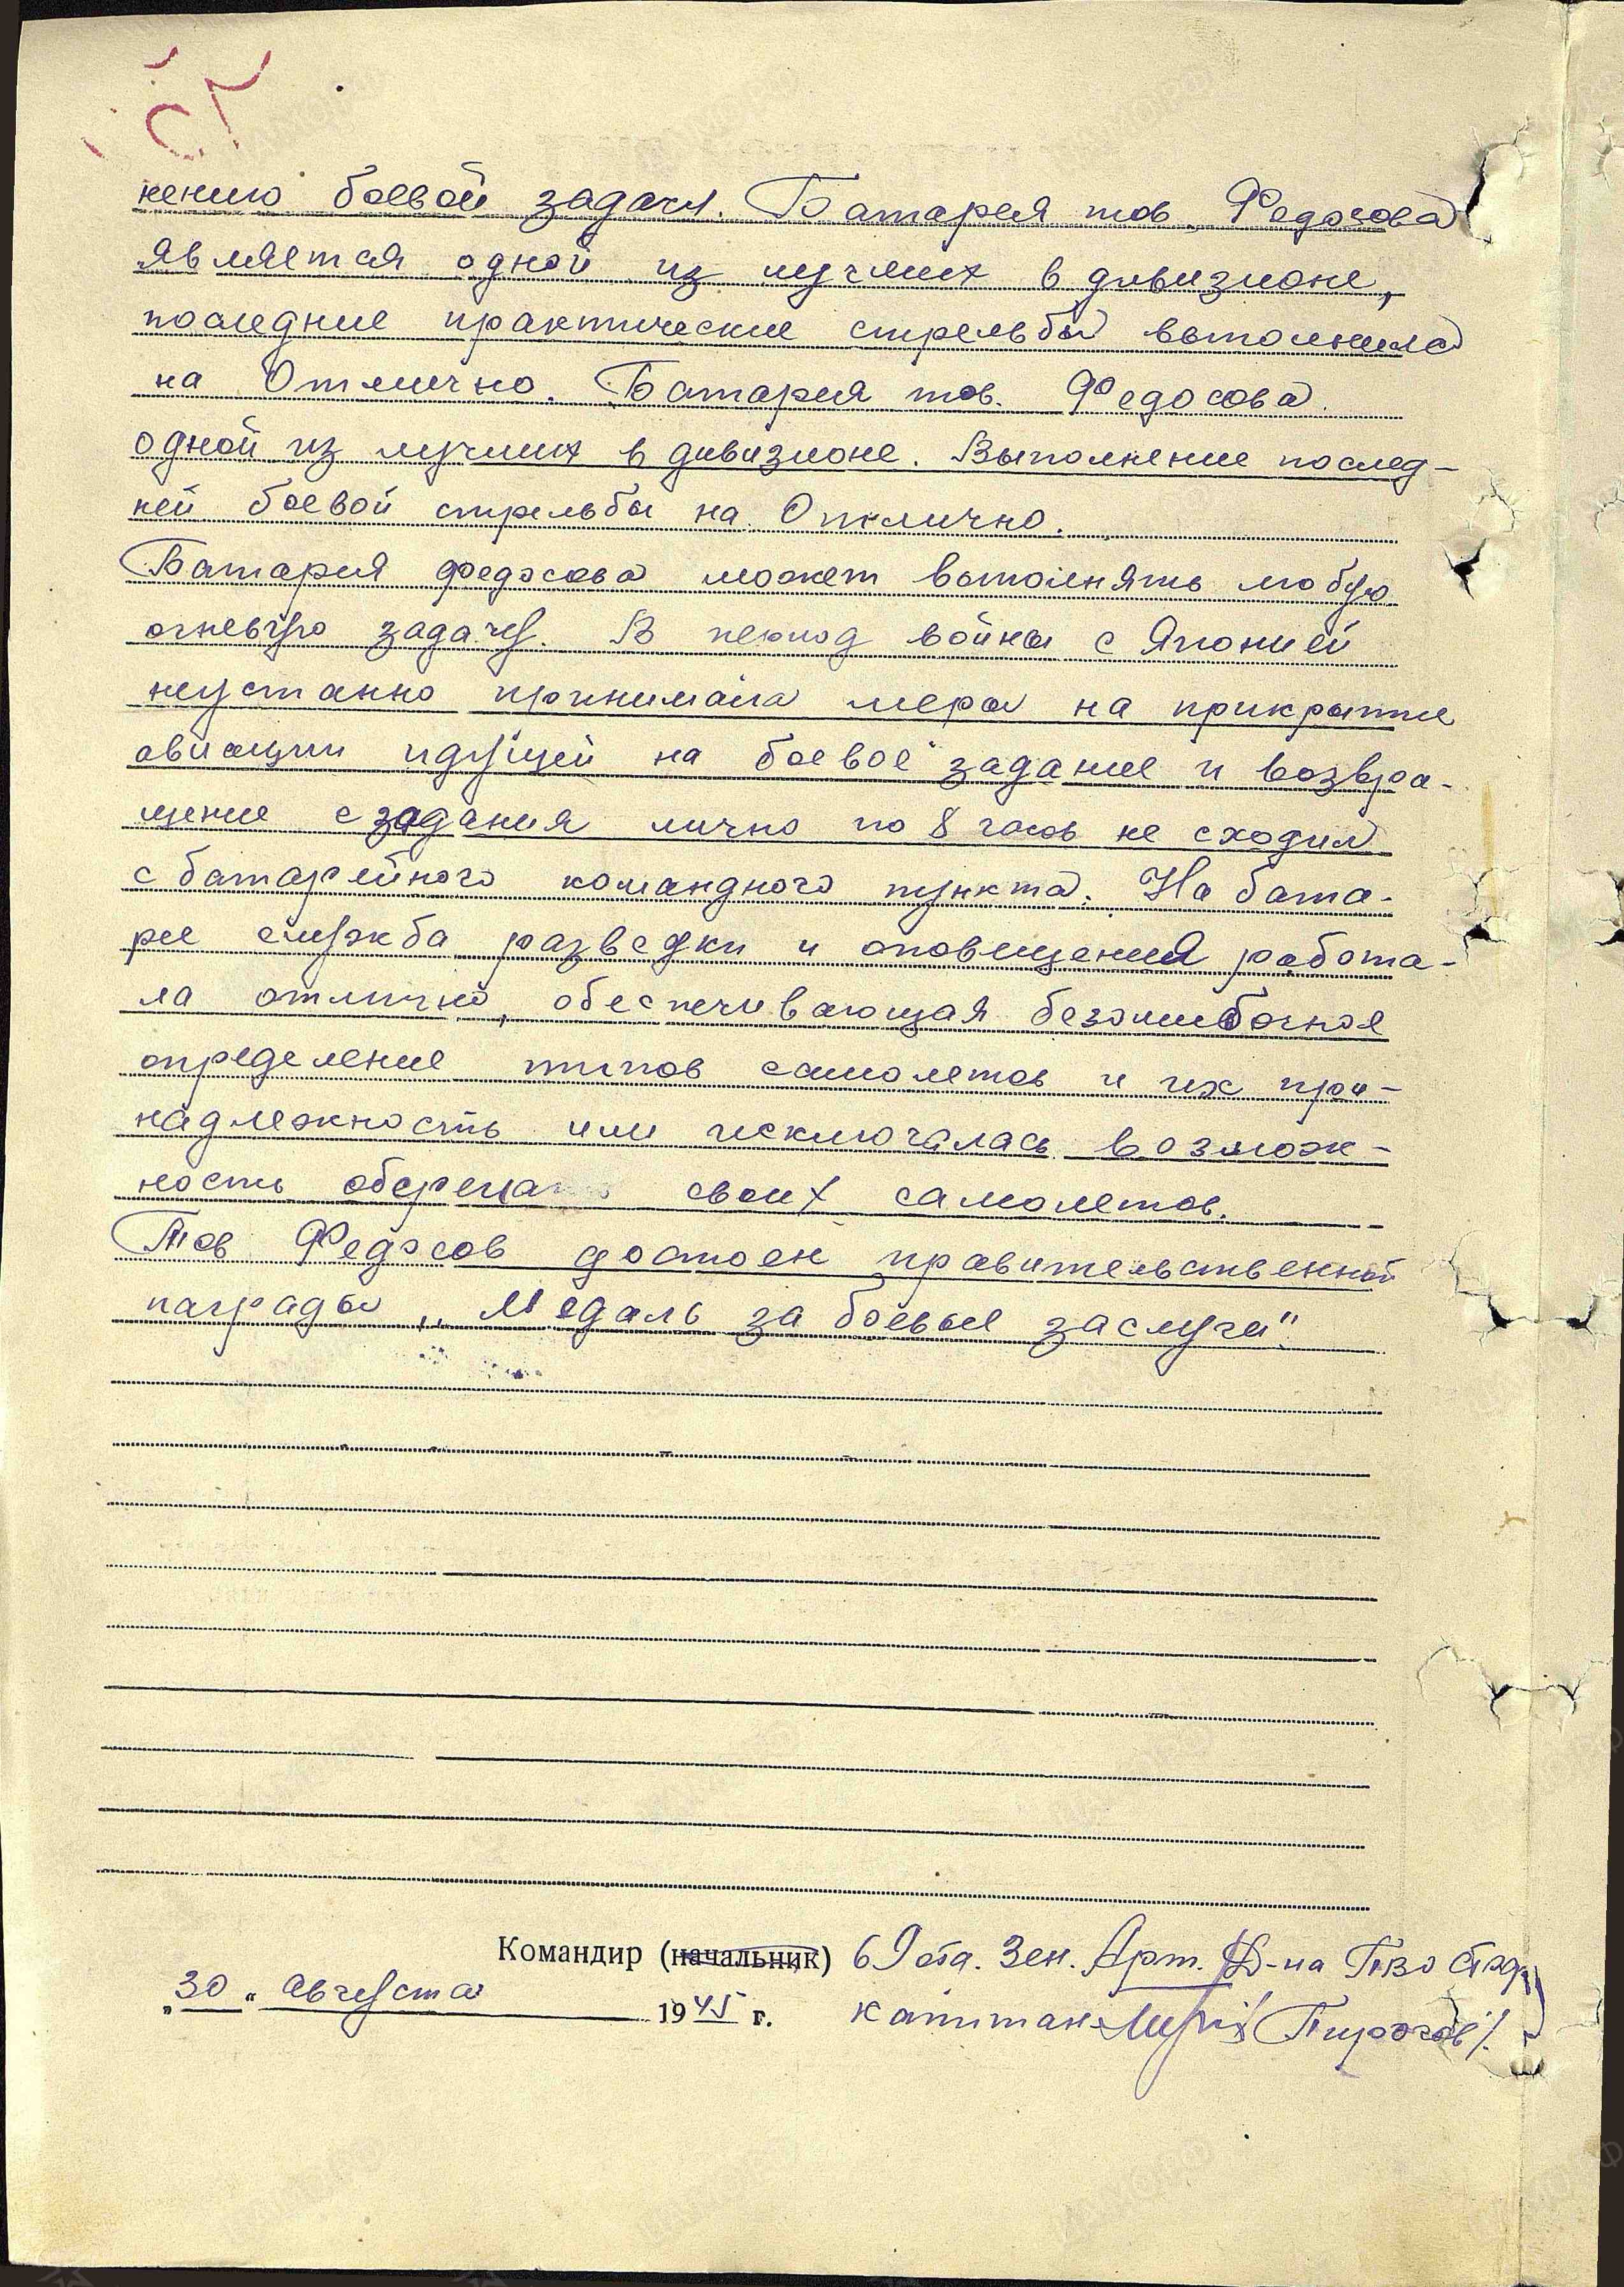 нению боевой задачи. Батарея тов. Федосова
является одной из лучших в дивизионе,
последние практические стрельбы выполнила
на Отлично. Батарея тов. Федосова
одной из лучших в дивизионе. Выполнение послед-
ней боевой стрельбы на Отлично.
Батарея Федосова может выполнять любую
огневую задачу. В период войны с Японией
неустанно принимала меры на прикрытие
авиации идущей на боевое задание и возвра-
щение с задания лично по 8 часов не сходил
с батарейного командного пункта. На бата-
рее служба разведки и оповещения работа-
ла отлично, обеспечивающая безошибочное
определение типов самолетов и их при-
надлежность или исключалась возмож-
ность своих самолетов.
Тов Федосов достоен правительственной
награды „Медаль за боевые заслуги"
Командир (начальник) 69 отд. Зен. Арт. Д-на ПВО
„30" Августа 1945 г. капитан /Пирогов/.